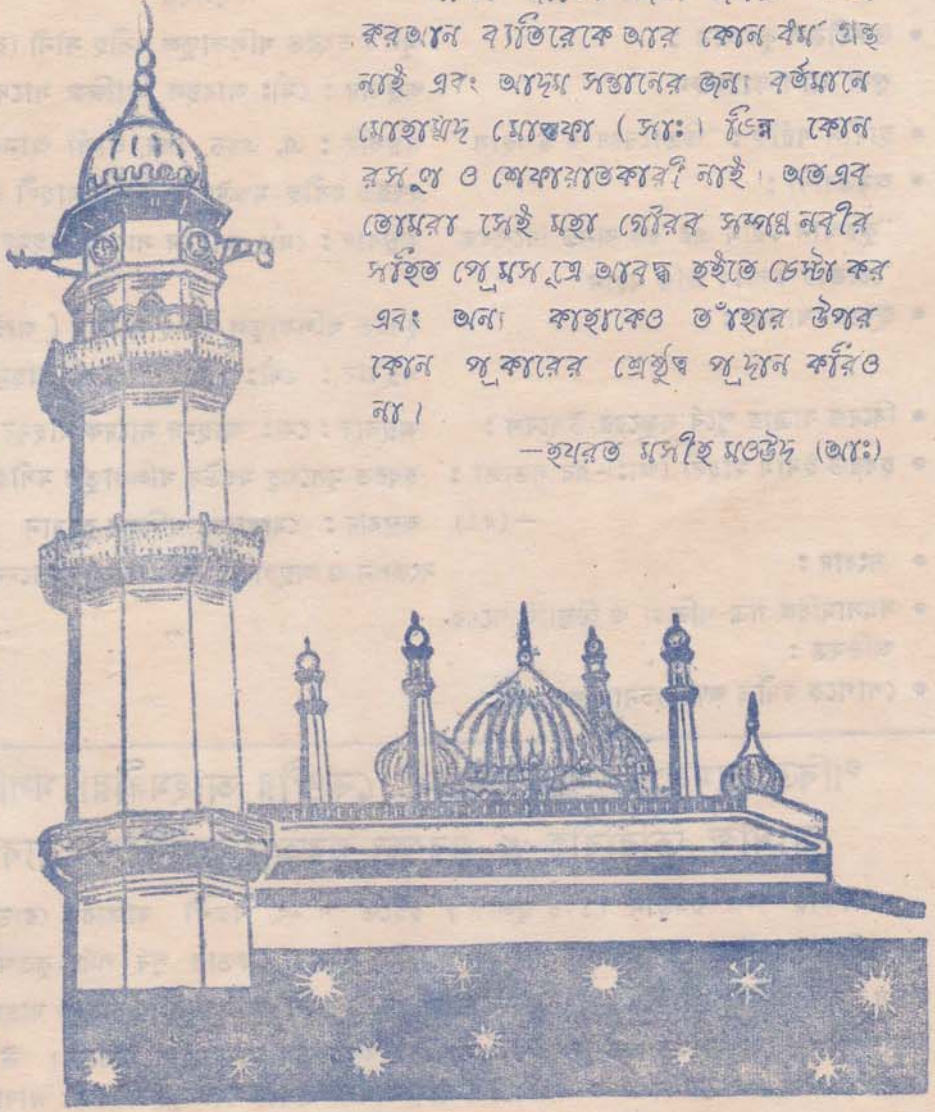 করআন ব্যতিরেকে আর কোন ধর্ম গ্রন্থ
নাই এবং আদম সন্তানের জন্য বর্তমানে
মোহাম্মদ মোস্তফা (সাঃ) ভিন্ন কোন
রসূল ও শেফায়াতকারী নাই। অতএব
তোমরা সেই মহা গৌরব সম্পন্ন নবীর
সহিত প্রেমসূত্রে আবদ্ধ হইতে চেস্টা কর
এবং অন্য কাহাকেও তাঁহার উপর
কোন প্রকারের শ্রেষ্ঠত্ব প্রদান করিও
না।
—হযরত মসীহ মওউদ (আঃ)